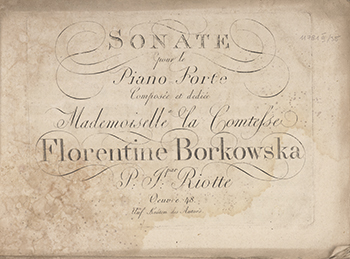 SONATE
pour le
Piano-Forte
Composée et dediée
à
Mademoiselle la Comtesse
Florentine Borkowska
par
P. J. Riotte
Oeuvre 48.